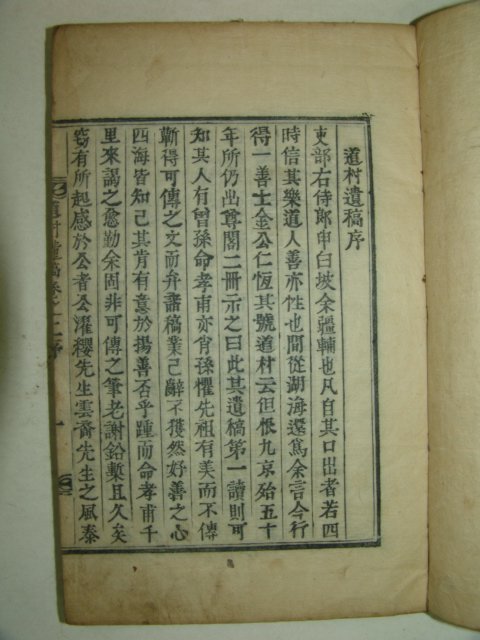 道村遺稿序
吏部右侍郎申白坡余彊輔也凡自其口出者若四
時信其樂道人善亦性也間從湖海還爲余言今行
得一善士金公仁恆其號道村云但恨九京殆五十
年所仍出尊閣二冊示之曰此其遺稿第一讀則可
知其人有曾孫命孝甫亦肖孫懼先祖有美而不傳
蘄得可傳之文而弁諸稿業已辭不獲然好善之心
四海皆知己其肯有意於揚善否乎踵而命孝甫千
里來謁之愈勤余固非可傳之筆老謝鉛槧且久矣
竊有所起感於公者公濯纓先生雲裔先生之風秦
道村遺稿卷之一 序 一